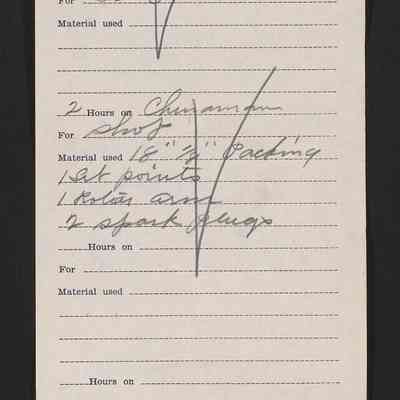 For
Material used
2 Hours on Chinaman
For shot
Material used 18" ½" Packing
1 Set points
1 Rotor arm
2 spark plugs
Hours on
For
Material used
Hours on